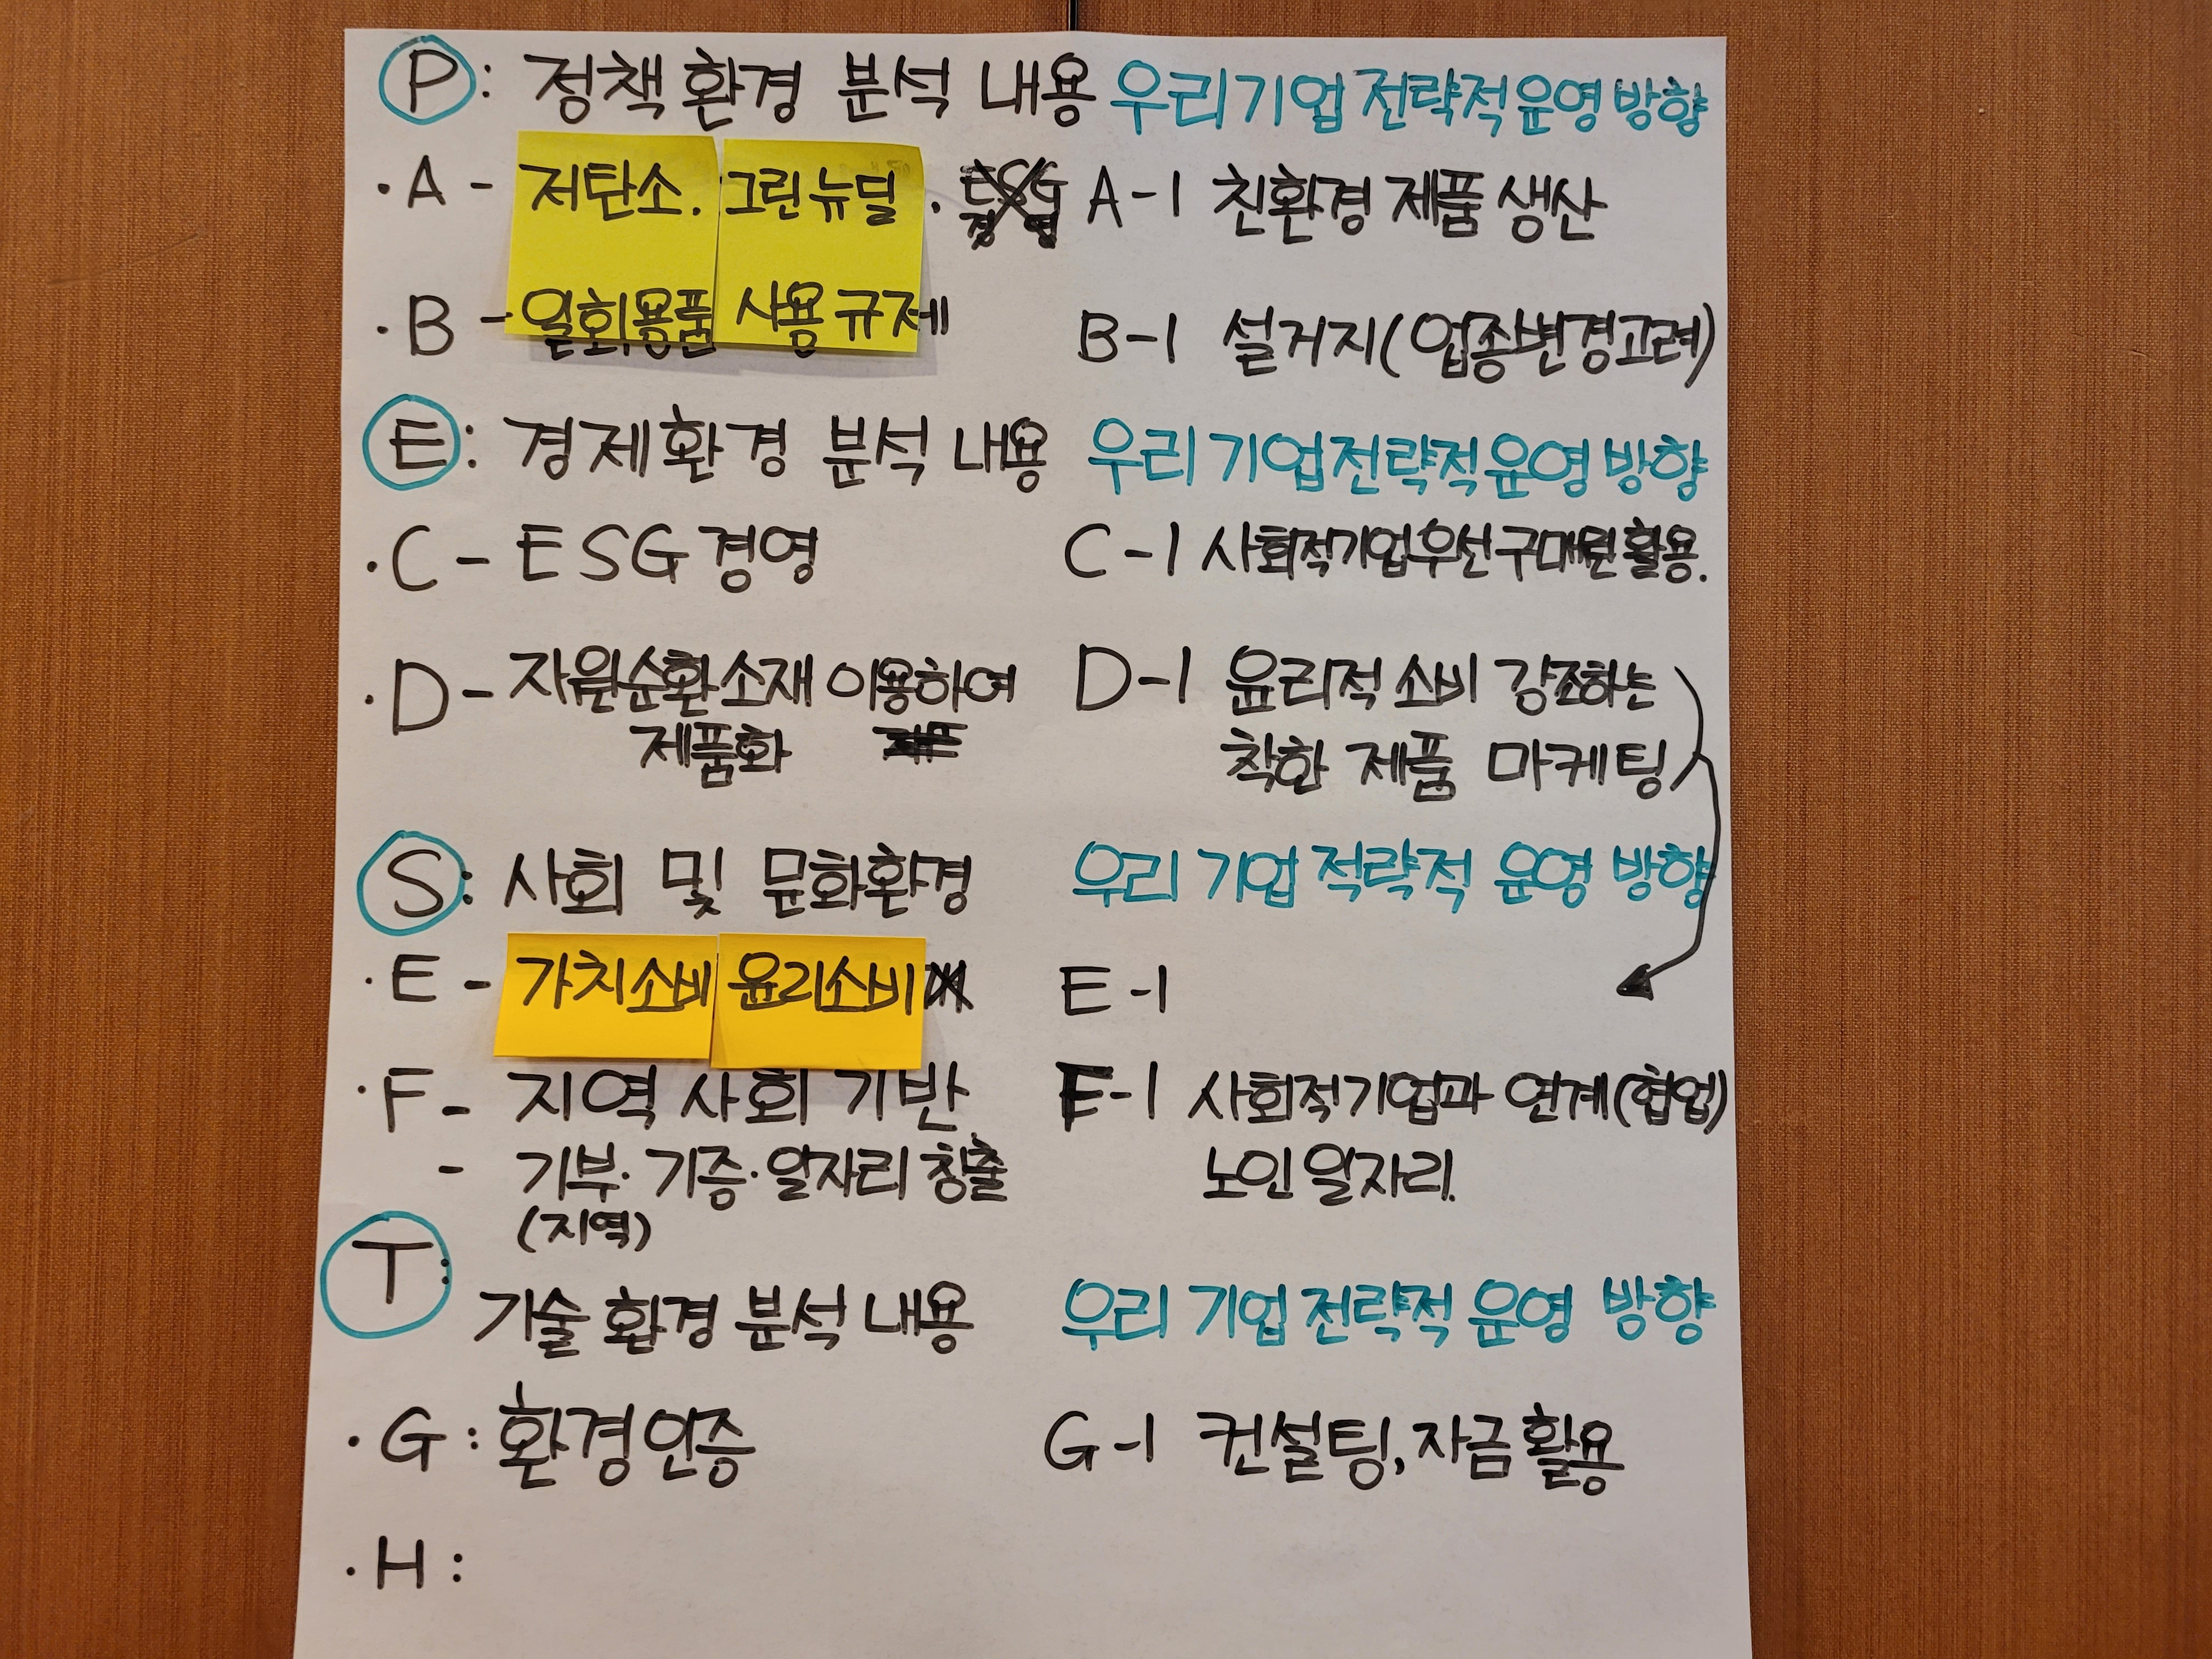 P: 정책 환경 분석 내용 우리 기업 전략적 운영 방향
· A - 저탄소. 그린 뉴딜 . A-1 친환경 제품 생산
· B - 일회용품 사용 규제 B-1 설거지(업종변경고려)
E: 경제 환경 분석 내용 우리 기업 전략적 운영 방향
· C - ESG 경영 C-1 사회적기업우선구매 활용.
· D - 자원순환소재 이용하여 D-1 윤리적 소비 강조하는
제품화 착한 제품 마케팅
S: 사회 및 문화환경 우리 기업 적략적 운영 방향
· E - 가치소비 윤리소비 E-1
· F - 지역 사회 기반 F-1 사회적기업과 연계(협업)
- 기부· 기증· 일자리 창출 노인일자리.
(지역)
T:
기술 환경 분석 내용 우리 기업 전략적 운영 방향
· G : 환경인증 G-1 컨설팅, 자금 활용
· H :